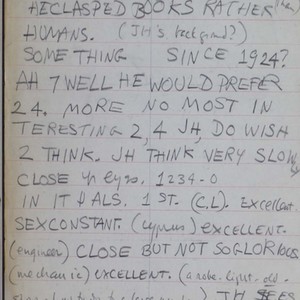 HECLASPED BOOKS RATHER than
HUMANS. (JH's background?)
SOMETHING SINCE 1924?
AH 7 WELL HE WOULD PREFER
24. MORE NO MOST IN
TERESTING 2, 4 JH, DO WISH
2 THINK. JH THINK VERY SLOW
CLOSE yr eyes. 1234-0
IN IT PALS. 1 ST. (C.L.) EXCELLENT
SEXCONSTANT. (cyprus) EXCELLENT.
(engineer) CLOSE BUT NOT SOGLORIOUS
(mechanic) EXCELLENT. (a robe. light. old
JH SEES